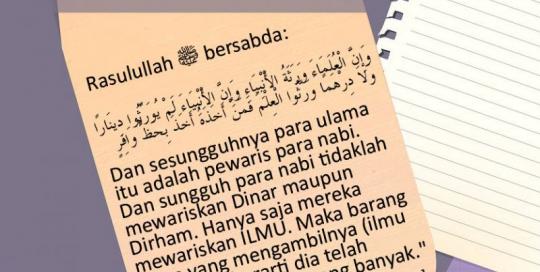 Rasulullah ﷺ bersabda:
وَإِنَّ الْعُلَمَاءَ وَرَثَةُ الْأَنْبِيَاءِ وَإِنَّ الْأَنْبِيَاءَ لَمْ يُوَرِّثُوا دِينَارًا
وَلَا دِرْهَمًا وَرَّثُوا الْعِلْمَ فَمَنْ أَخَذَهُ أَخَذَ بِحَظٍّ وَافِرٍ
Dan sesungguhnya para ulama
itu adalah pewaris para nabi.
Dan sungguh para nabi tidaklah
mewariskan Dinar maupun
Dirham. Hanya saja mereka
mewariskan ILMU. Maka barang
yang mengambilnya (ilmu
dia telah
banyak."